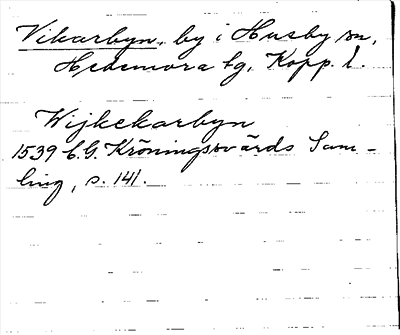 Vikarbyn, by i Husby sn,
Hedemora tg, Kopp. l.
Wijkekarbyn
1539 C.G. Kröningssvärds Sam-
ling, s. 141.